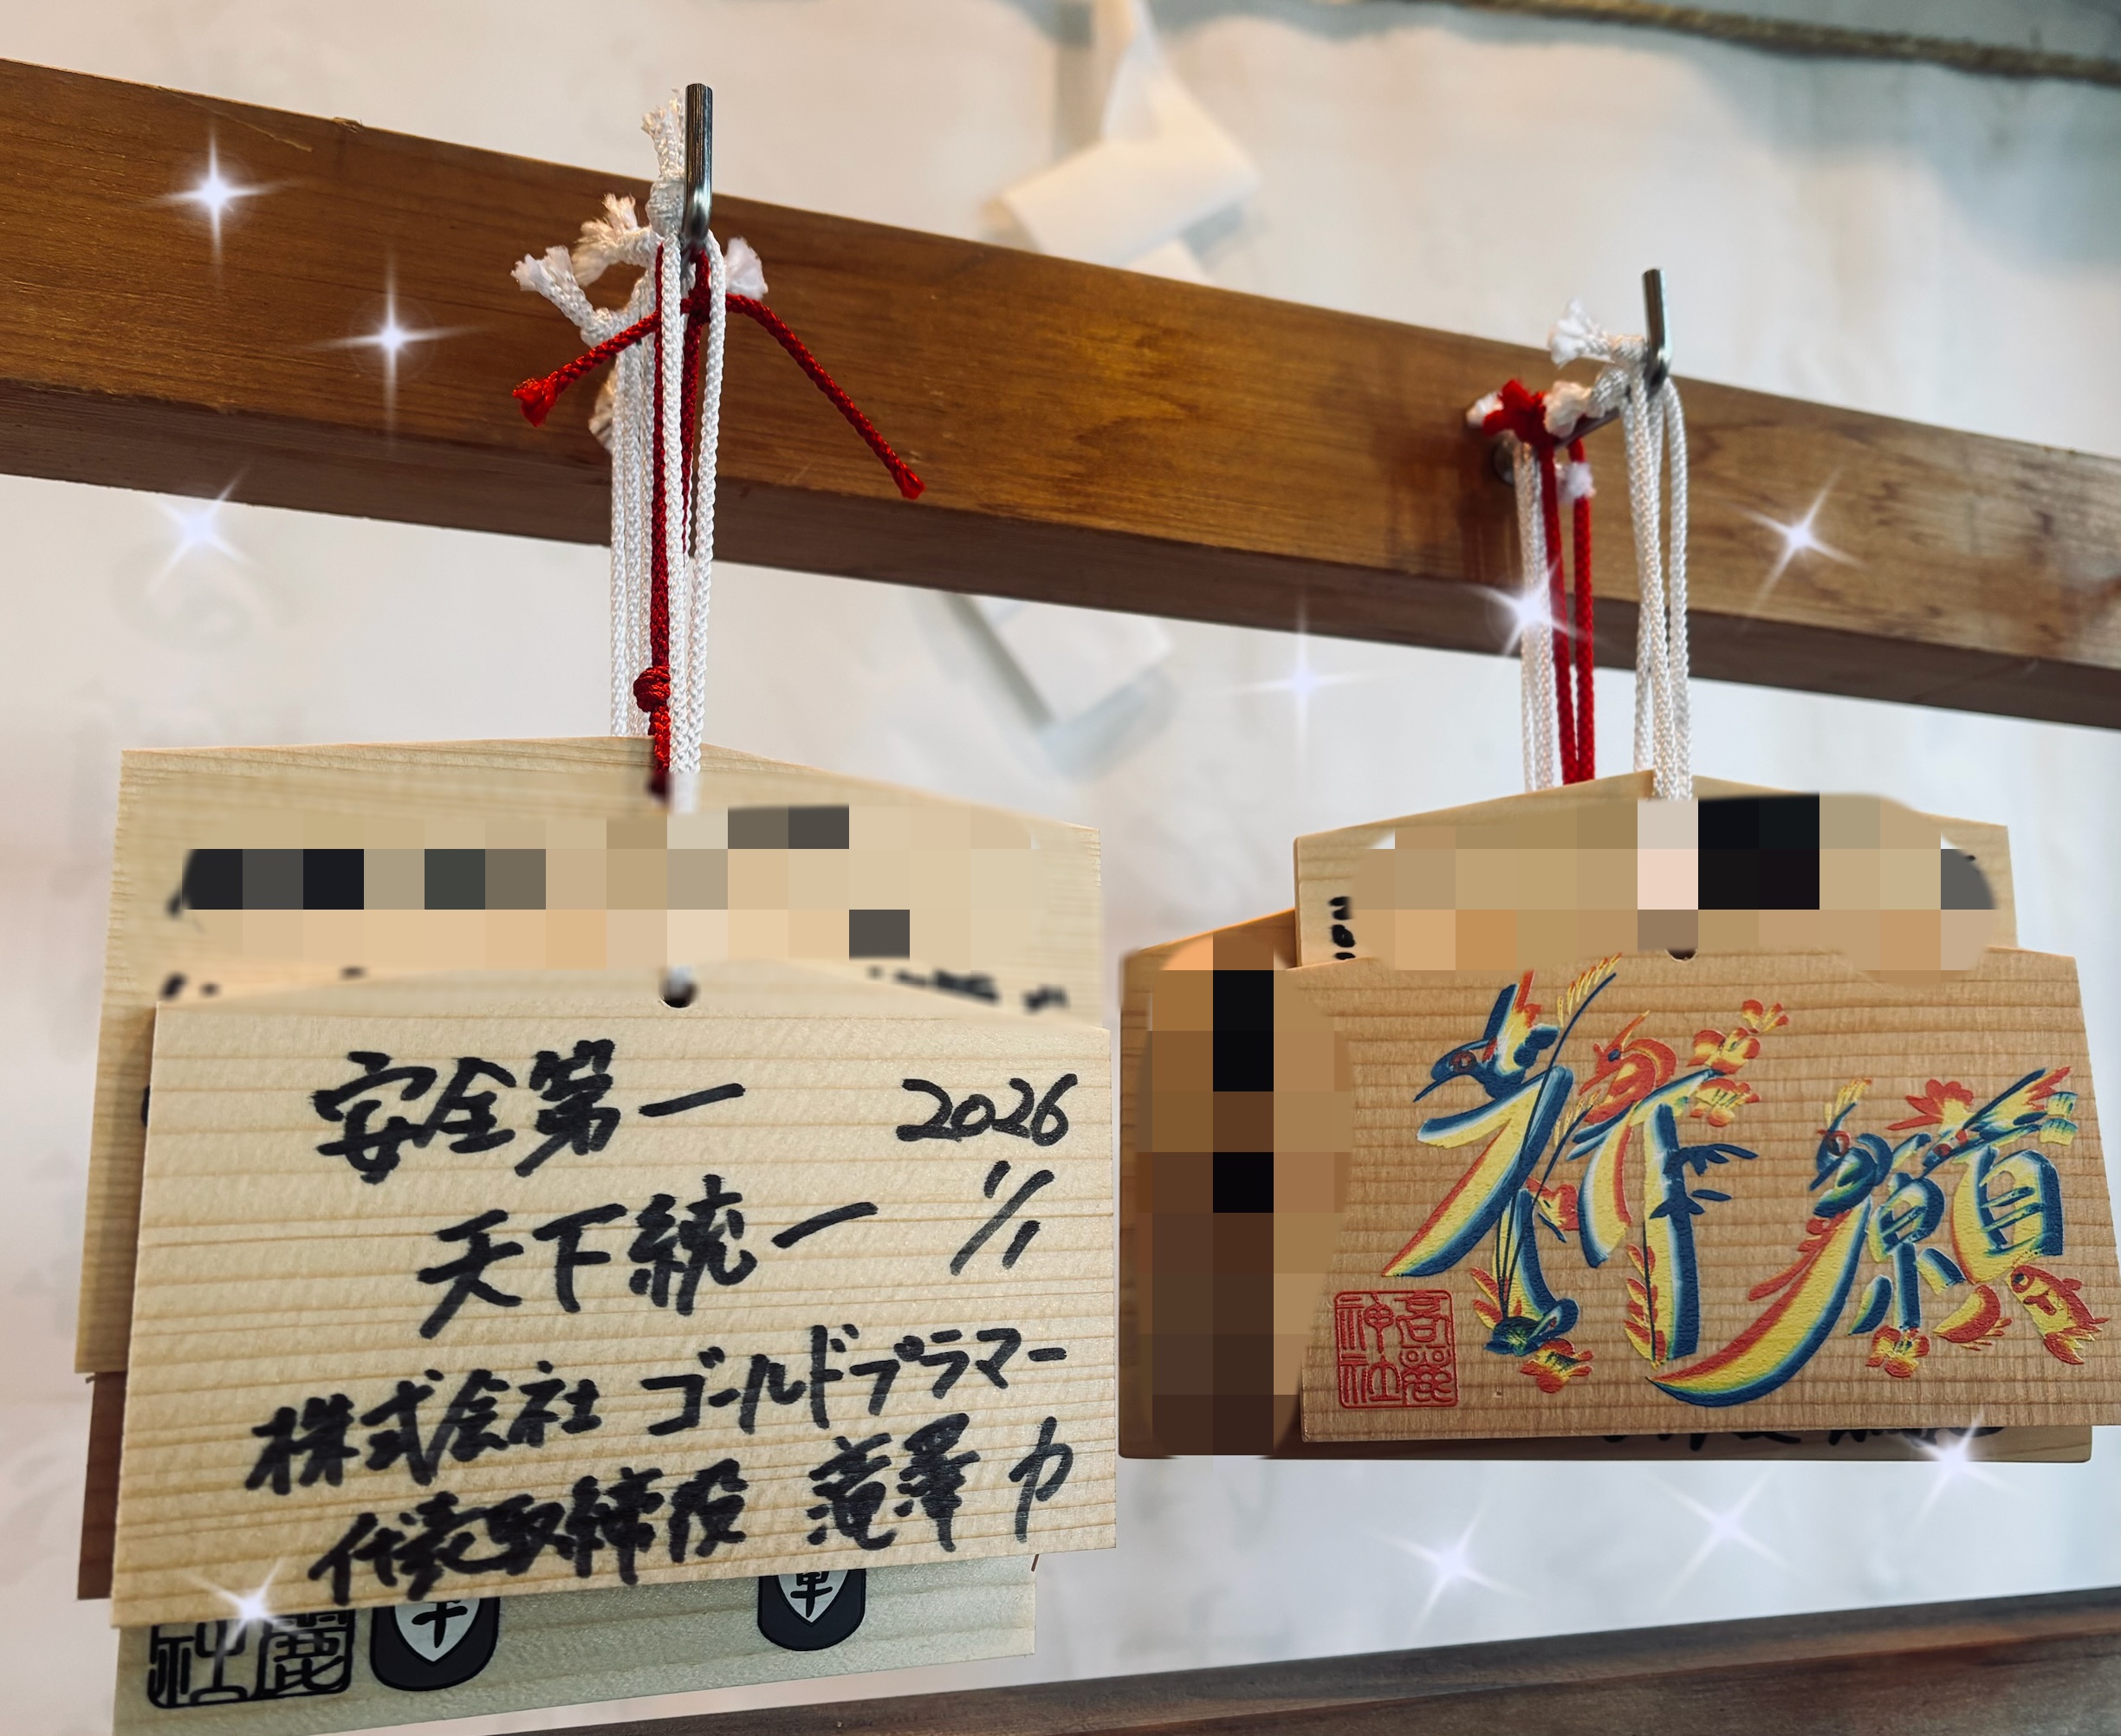 安全第一
2026
1/1
天下統一
株式会社 ゴールドプラマー
代表取締役 滝澤 力
祈願
高麗
神社